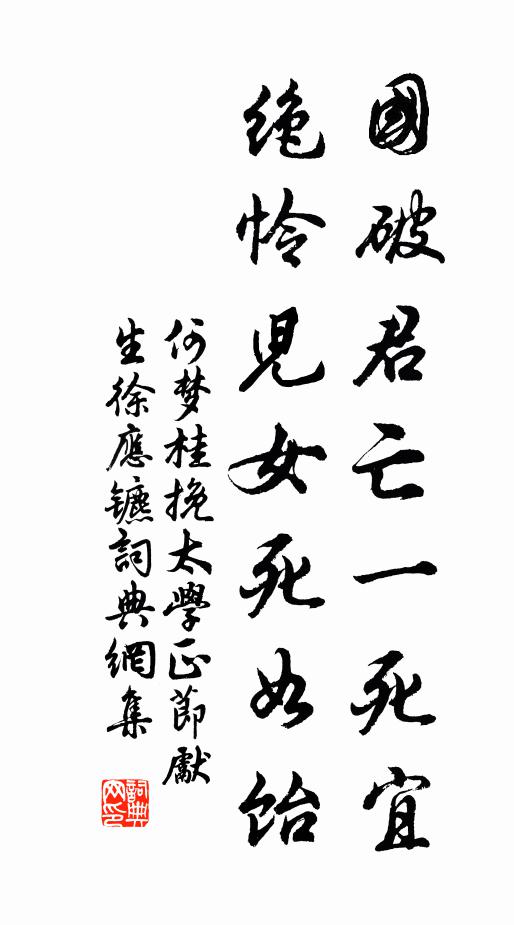 國破君亡一死宜
絕怜児女死如飴
何梦桂挽太學正節獻
生徐應镳詞典網集
詞典网印